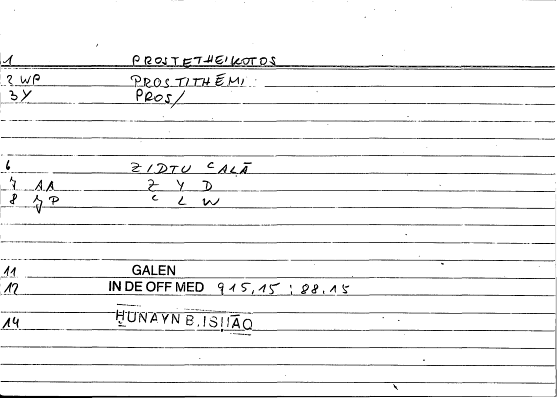 1 PROSTETHEIKOTOS
2 WP PROSTITHĒMI
3 Y PROS/
6 ZIDTU ʿALĀ
7 AA Z Y D
8 JP ʿ L W
11 GALEN
12 IN DE OFF MED 915,15 : 88,15
14 ḤUNAYN B. ISḤĀQ